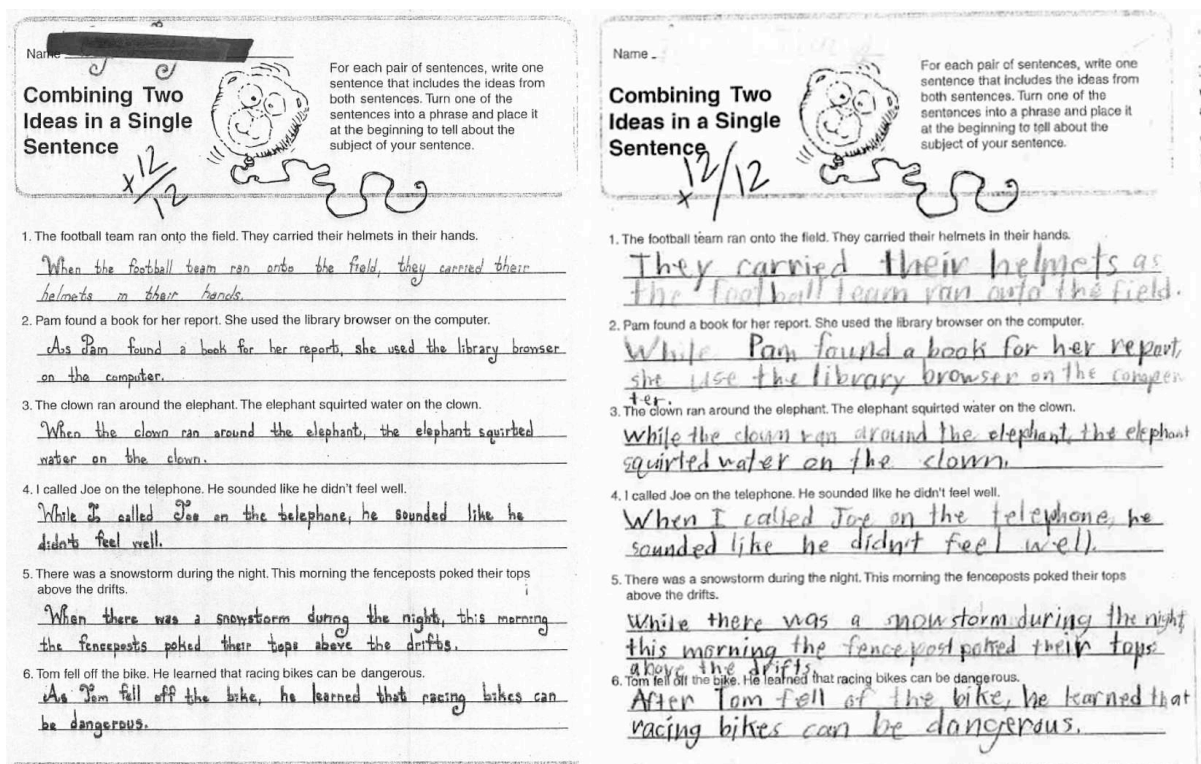 Name
Combining Two
Ideas in a Single
Sentence
+12/12
For each pair of sentences, write one
sentence that includes the ideas from
both sentences. Turn one of the
sentences into a phrase and place it
at the beginning to tell about the
subject of your sentence.
1. The football team ran onto the field. They carried their helmets in their hands.
When the football team ran onto the field, they carried their
helmets in their hands.
2. Pam found a book for her report. She used the library browser on the computer.
As Pam found a book for her report, she used the library browser
on the computer.
3. The clown ran around the elephant. The elephant squirted water on the clown.
When the clown ran around the elephant, the elephant squirted
water on the clown.
4. I called Joe on the telephone. He sounded like he didn't feel well.
While I called Joe on the telephone, he sounded like he
didn't feel well.
5. There was a snowstorm during the night. This morning the fenceposts poked their tops
above the drifts.
When there was a snowstorm during the night, this morning
the fenceposts poked their tops above the drifts.
6. Tom fell off the bike. He learned that racing bikes can be dangerous.
As Tom fell off the bike, he learned that racing bikes can
be dangerous.
Name
Combining Two
Ideas in a Single
Sentence
+12/12
For each pair of sentences, write one
sentence that includes the ideas from
both sentences. Turn one of the
sentences into a phrase and place it
at the beginning to tell about the
subject of your sentence.
1. The football team ran onto the field. They carried their helmets in their hands.
They carried their helmets as
the football team ran onto the field.
2. Pam found a book for her report. She used the library browser on the computer.
While Pam found a book for her report,
she use the library browser on the compu
ter.
3. The clown ran around the elephant. The elephant squirted water on the clown.
while the clown ran around the elephant, the elephant
squirted water on the clown.
4. I called Joe on the telephone. He sounded like he didn't feel well.
When I called Joe on the telephone, he
sounded like he didn't feel well.
5. There was a snowstorm during the night. This morning the fenceposts poked their tops
above the drifts.
While there was a snowstorm during the night,
this morning the fencepost poked their tops
above the drifts.
6. Tom fell off the bike. He learned that racing bikes can be dangerous.
After Tom fell of the bike, he learned that
racing bikes can be dangerous.